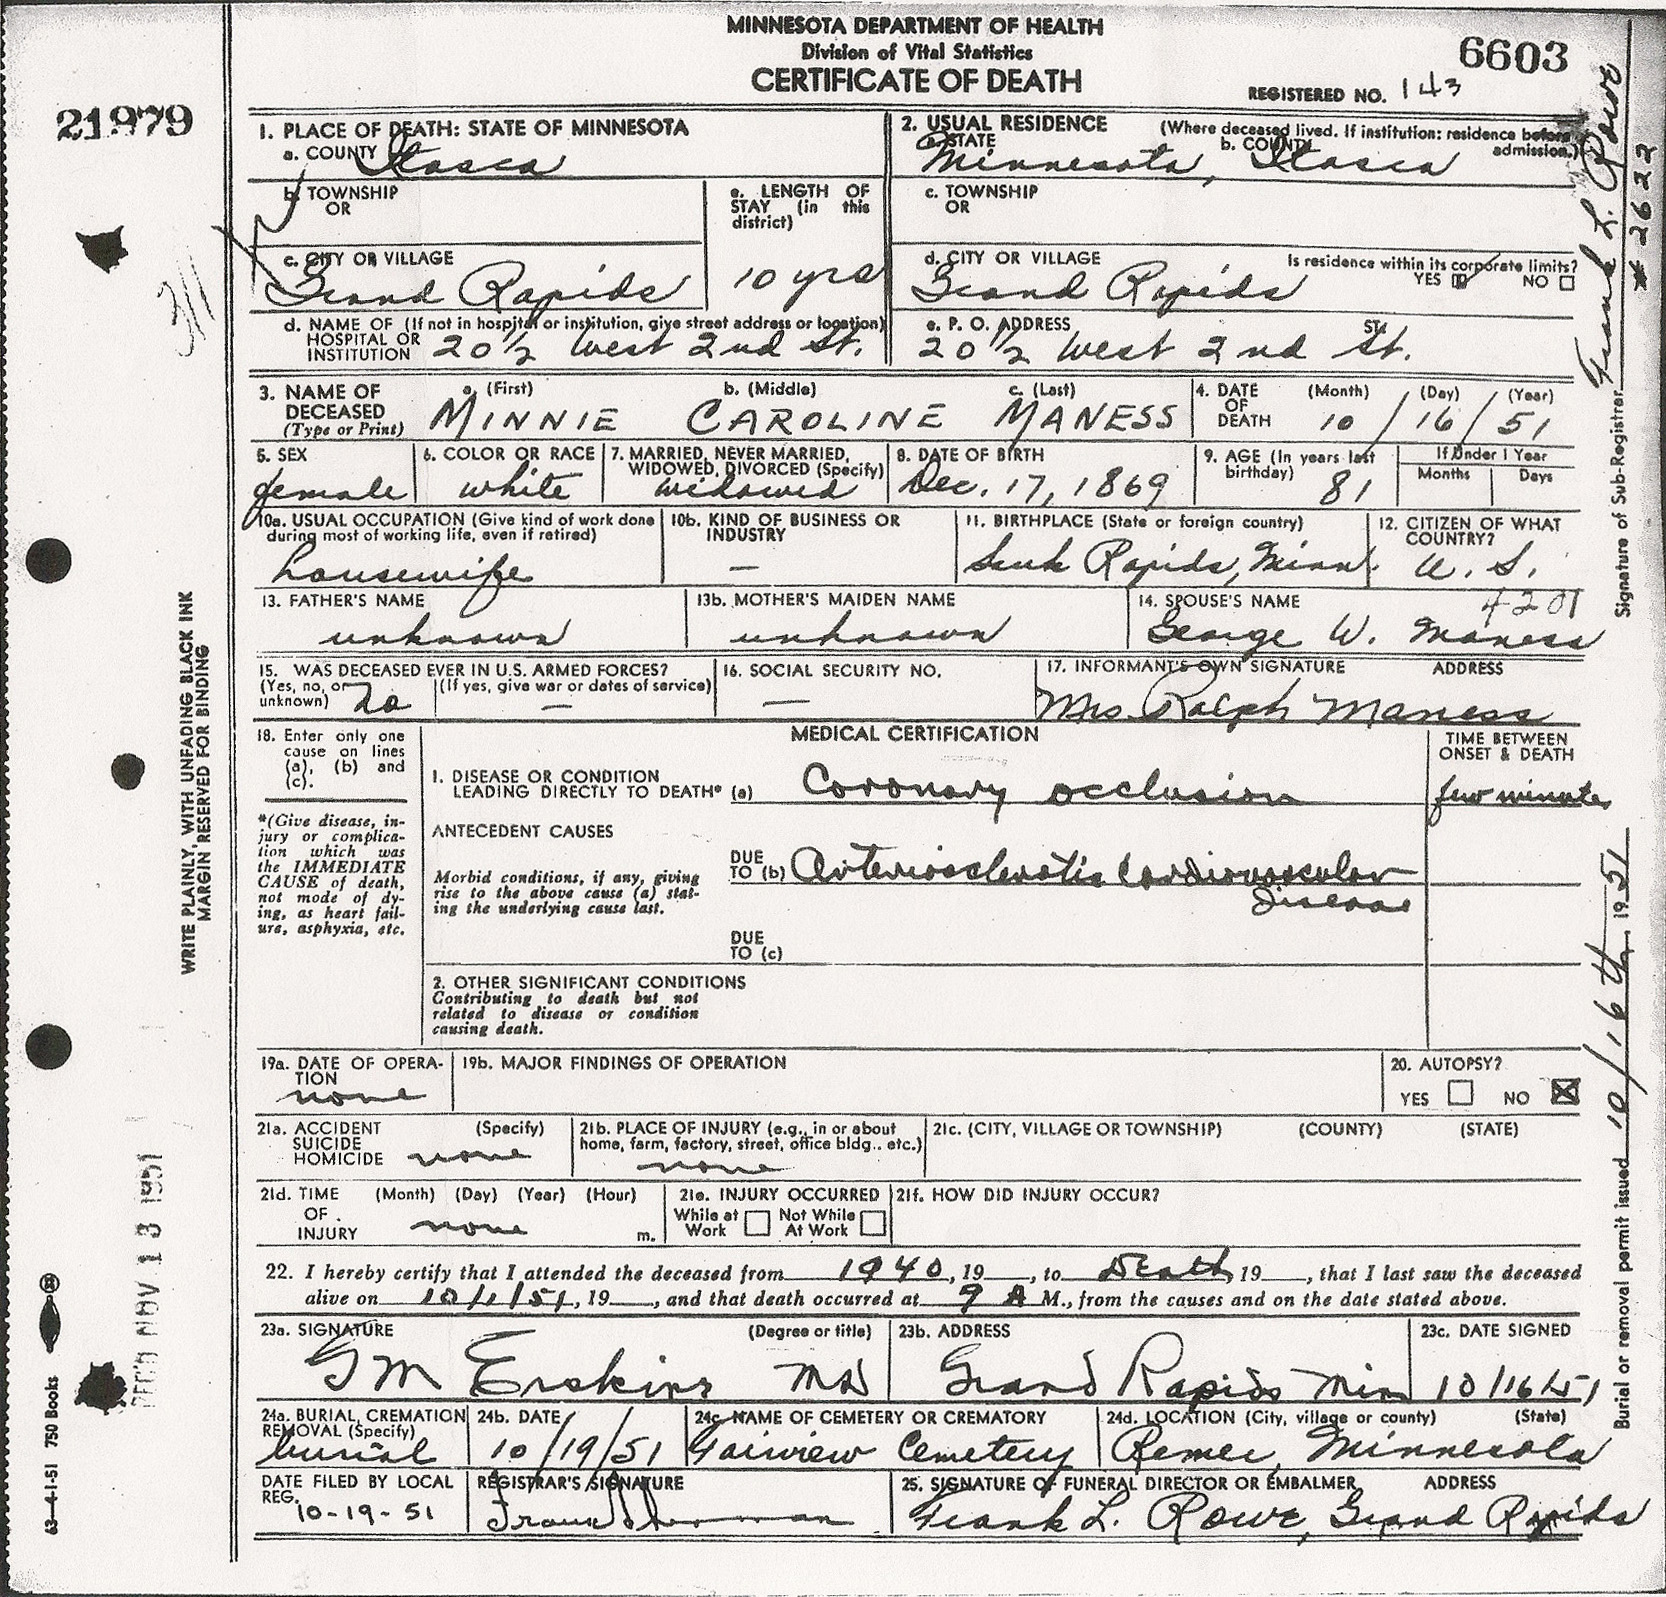 MINNESOTA DEPARTMENT OF HEALTH
Division of Vital Statistics
CERTIFICATE OF DEATH
6603
REGISTERED NO. 143
21979
1. PLACE OF DEATH: STATE OF MINNESOTA
a. COUNTY Itasca
2. USUAL RESIDENCE (Where deceased lived. If institution: residence before admission.)
a. STATE b. COUNTY
Minnesota, Itasca
b. TOWNSHIP OR
e. LENGTH OF STAY (in this district)
10 yrs
c. TOWNSHIP OR
c. CITY OR VILLAGE
Grand Rapids
d. CITY OR VILLAGE
Grand Rapids
Is residence within its corporate limits?
YES NO
d. NAME OF (If not in hospital or institution, give street address or location)
HOSPITAL OR INSTITUTION 20 1/2 West 2nd St.
e. P. O. ADDRESS St.
20 1/2 West 2nd St.
3. NAME OF DECEASED (Type or Print)
a. (First) b. (Middle) c. (Last)
MINNIE CAROLINE MANESS
4. DATE OF DEATH (Month) (Day) (Year)
10 / 16 / 51
5. SEX
female
6. COLOR OR RACE
white
7. MARRIED, NEVER MARRIED, WIDOWED, DIVORCED (Specify)
widowed
8. DATE OF BIRTH
Dec. 17, 1869
9. AGE (In years last birthday)
81
If Under 1 Year
Months Days
10a. USUAL OCCUPATION (Give kind of work done during most of working life, even if retired)
housewife
10b. KIND OF BUSINESS OR INDUSTRY
—
11. BIRTHPLACE (State or foreign country)
Sauk Rapids, Minn.
12. CITIZEN OF WHAT COUNTRY?
U. S.
13. FATHER'S NAME
unknown
13b. MOTHER'S MAIDEN NAME
unknown
14. SPOUSE'S NAME
4201
George W. Maness
15. WAS DECEASED EVER IN U.S. ARMED FORCES?
(Yes, no, or unknown) no (If yes, give war or dates of service)
—
16. SOCIAL SECURITY NO.
—
17. INFORMANT'S OWN SIGNATURE ADDRESS
Mrs. Ralph Maness
18. Enter only one cause on lines (a), (b) and (c).
*(Give disease, injury or complication which was the IMMEDIATE CAUSE of death, not mode of dying, as heart failure, asphyxia, etc.
MEDICAL CERTIFICATION
TIME BETWEEN ONSET & DEATH
1. DISEASE OR CONDITION LEADING DIRECTLY TO DEATH* (a) Coronary occlusion
few minutes
ANTECEDENT CAUSES
Morbid conditions, if any, giving rise to the above cause (a) stating the underlying cause last.
DUE TO (b) Arteriosclerotic Cardiovascular
Disease
DUE TO (c)
2. OTHER SIGNIFICANT CONDITIONS
Contributing to death but not related to disease or condition causing death.
19a. DATE OF OPERATION
none
19b. MAJOR FINDINGS OF OPERATION
20. AUTOPSY?
YES NO
21a. ACCIDENT SUICIDE HOMICIDE (Specify)
none
21b. PLACE OF INJURY (e.g., in or about home, farm, factory, street, office bldg., etc.)
none
21c. (CITY, VILLAGE OR TOWNSHIP) (COUNTY) (STATE)
21d. TIME OF INJURY (Month) (Day) (Year) (Hour)
none m.
21e. INJURY OCCURRED
While at Work Not While At Work
21f. HOW DID INJURY OCCUR?
22. I hereby certify that I attended the deceased from 1940, 19__, to Death, 19__, that I last saw the deceased
alive on 10/1/51, 19__, and that death occurred at 9 A M., from the causes and on the date stated above.
23a. SIGNATURE (Degree or title)
GM Erskine MD
23b. ADDRESS
Grand Rapids Minn
23c. DATE SIGNED
10/16/51
24a. BURIAL, CREMATION REMOVAL (Specify)
burial
24b. DATE
10/19/51
24c. NAME OF CEMETERY OR CREMATORY
Fairview Cemetery
24d. LOCATION (City, village or county) (State)
Remer, Minnesota
DATE FILED BY LOCAL REG.
10-19-51
REGISTRAR'S SIGNATURE
25. SIGNATURE OF FUNERAL DIRECTOR OR EMBALMER ADDRESS
Frank L. Rowe, Grand Rapids
WRITE PLAINLY, WITH UNFADING BLACK INK
MARGIN RESERVED FOR BINDING
311
REC'D NOV 13 1951
63-4-1-51 750 Books
Signature of Sub-Registrar Frank L. Rowe
# 2622
Burial or removal permit issued 10/16th 1951